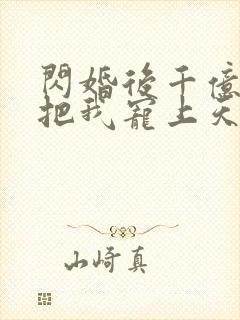 閃婚後千億
把我寵上天
山崎真